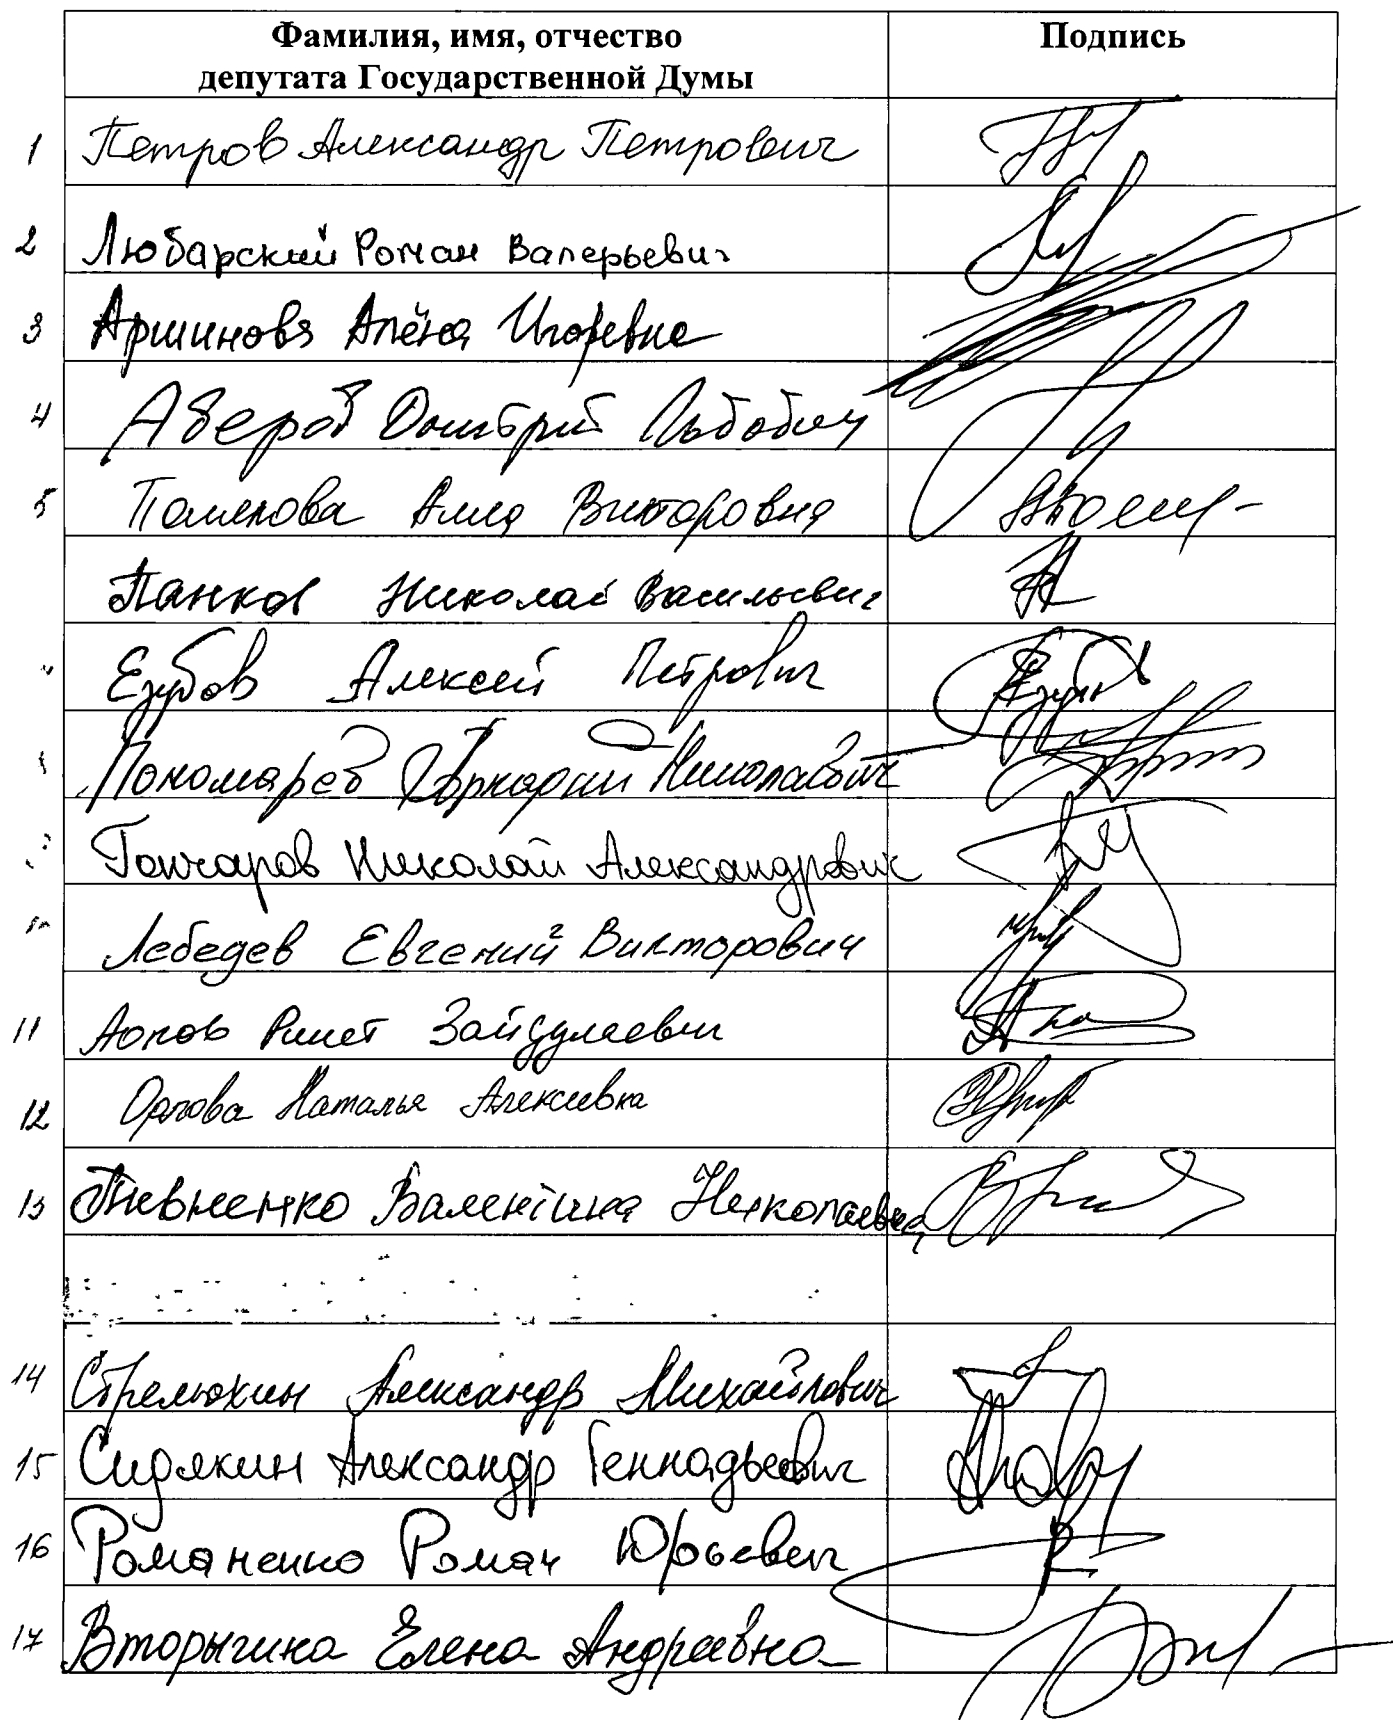 Фамилия, имя, отчество
депутата Государственной Думы
Подпись
1 Петров Александр Петрович
2 Любарский Роман Валерьевич
3 Аршинова Алёна Игоревна
4 Аверов Дмитрий Львович
5 Помелова Алла Викторовна
Панков Николай Васильевич
Езубов Алексей Петрович
Пономарев Аркадий Николаевич
Гончаров Николай Александрович
Лебедев Евгений Викторович
11 Аюпов Ришат Зайдулаевич
12 Орлова Наталья Алексеевна
13 Пивненко Валентина Николаевна
14 Стрелюхин Александр Михайлович
15 Сидякин Александр Геннадьевич
16 Романенко Роман Юрьевич
17 Вторыгина Елена Андреевна